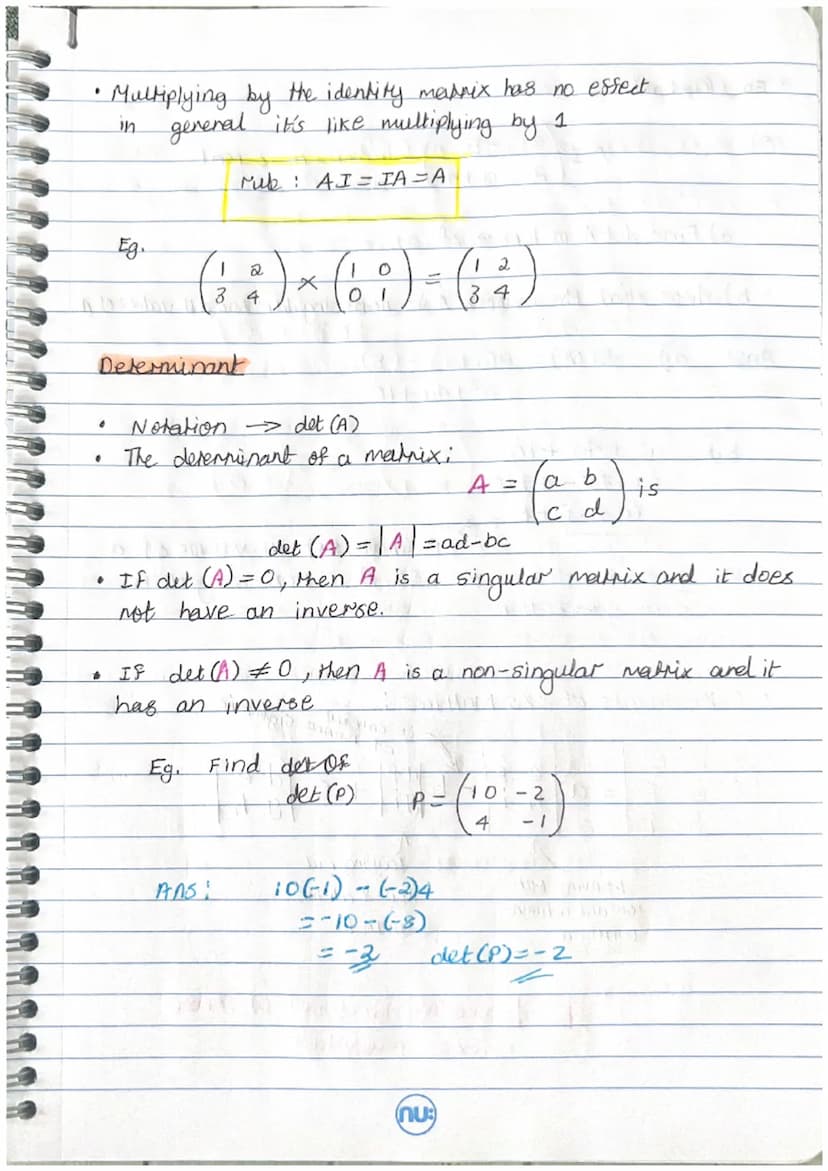 • Multiplying by the identity matrix has no effect
in general it's like multiplying by 1
rule : AI = IA = A
Eg.
(1 2
3 4) × (1 0
0 1) = (1 2
3 4)
Determinant
• Notation → det (A)
• The determinant of a matrix;
A = (a b
c d) is
det (A) = |A| = ad-bc
• If det (A) = 0, then A is a singular matrix and it does
not have an inverse.
• If det (A) ≠ 0, then A is a non-singular matrix and it
has an inverse
Eg. Find det of
det (P) P = (10 -2
4 -1)
Ans: 10(-1) - (-2)4
= -10 - (-8)
= -2 det (P) = -2
nu: